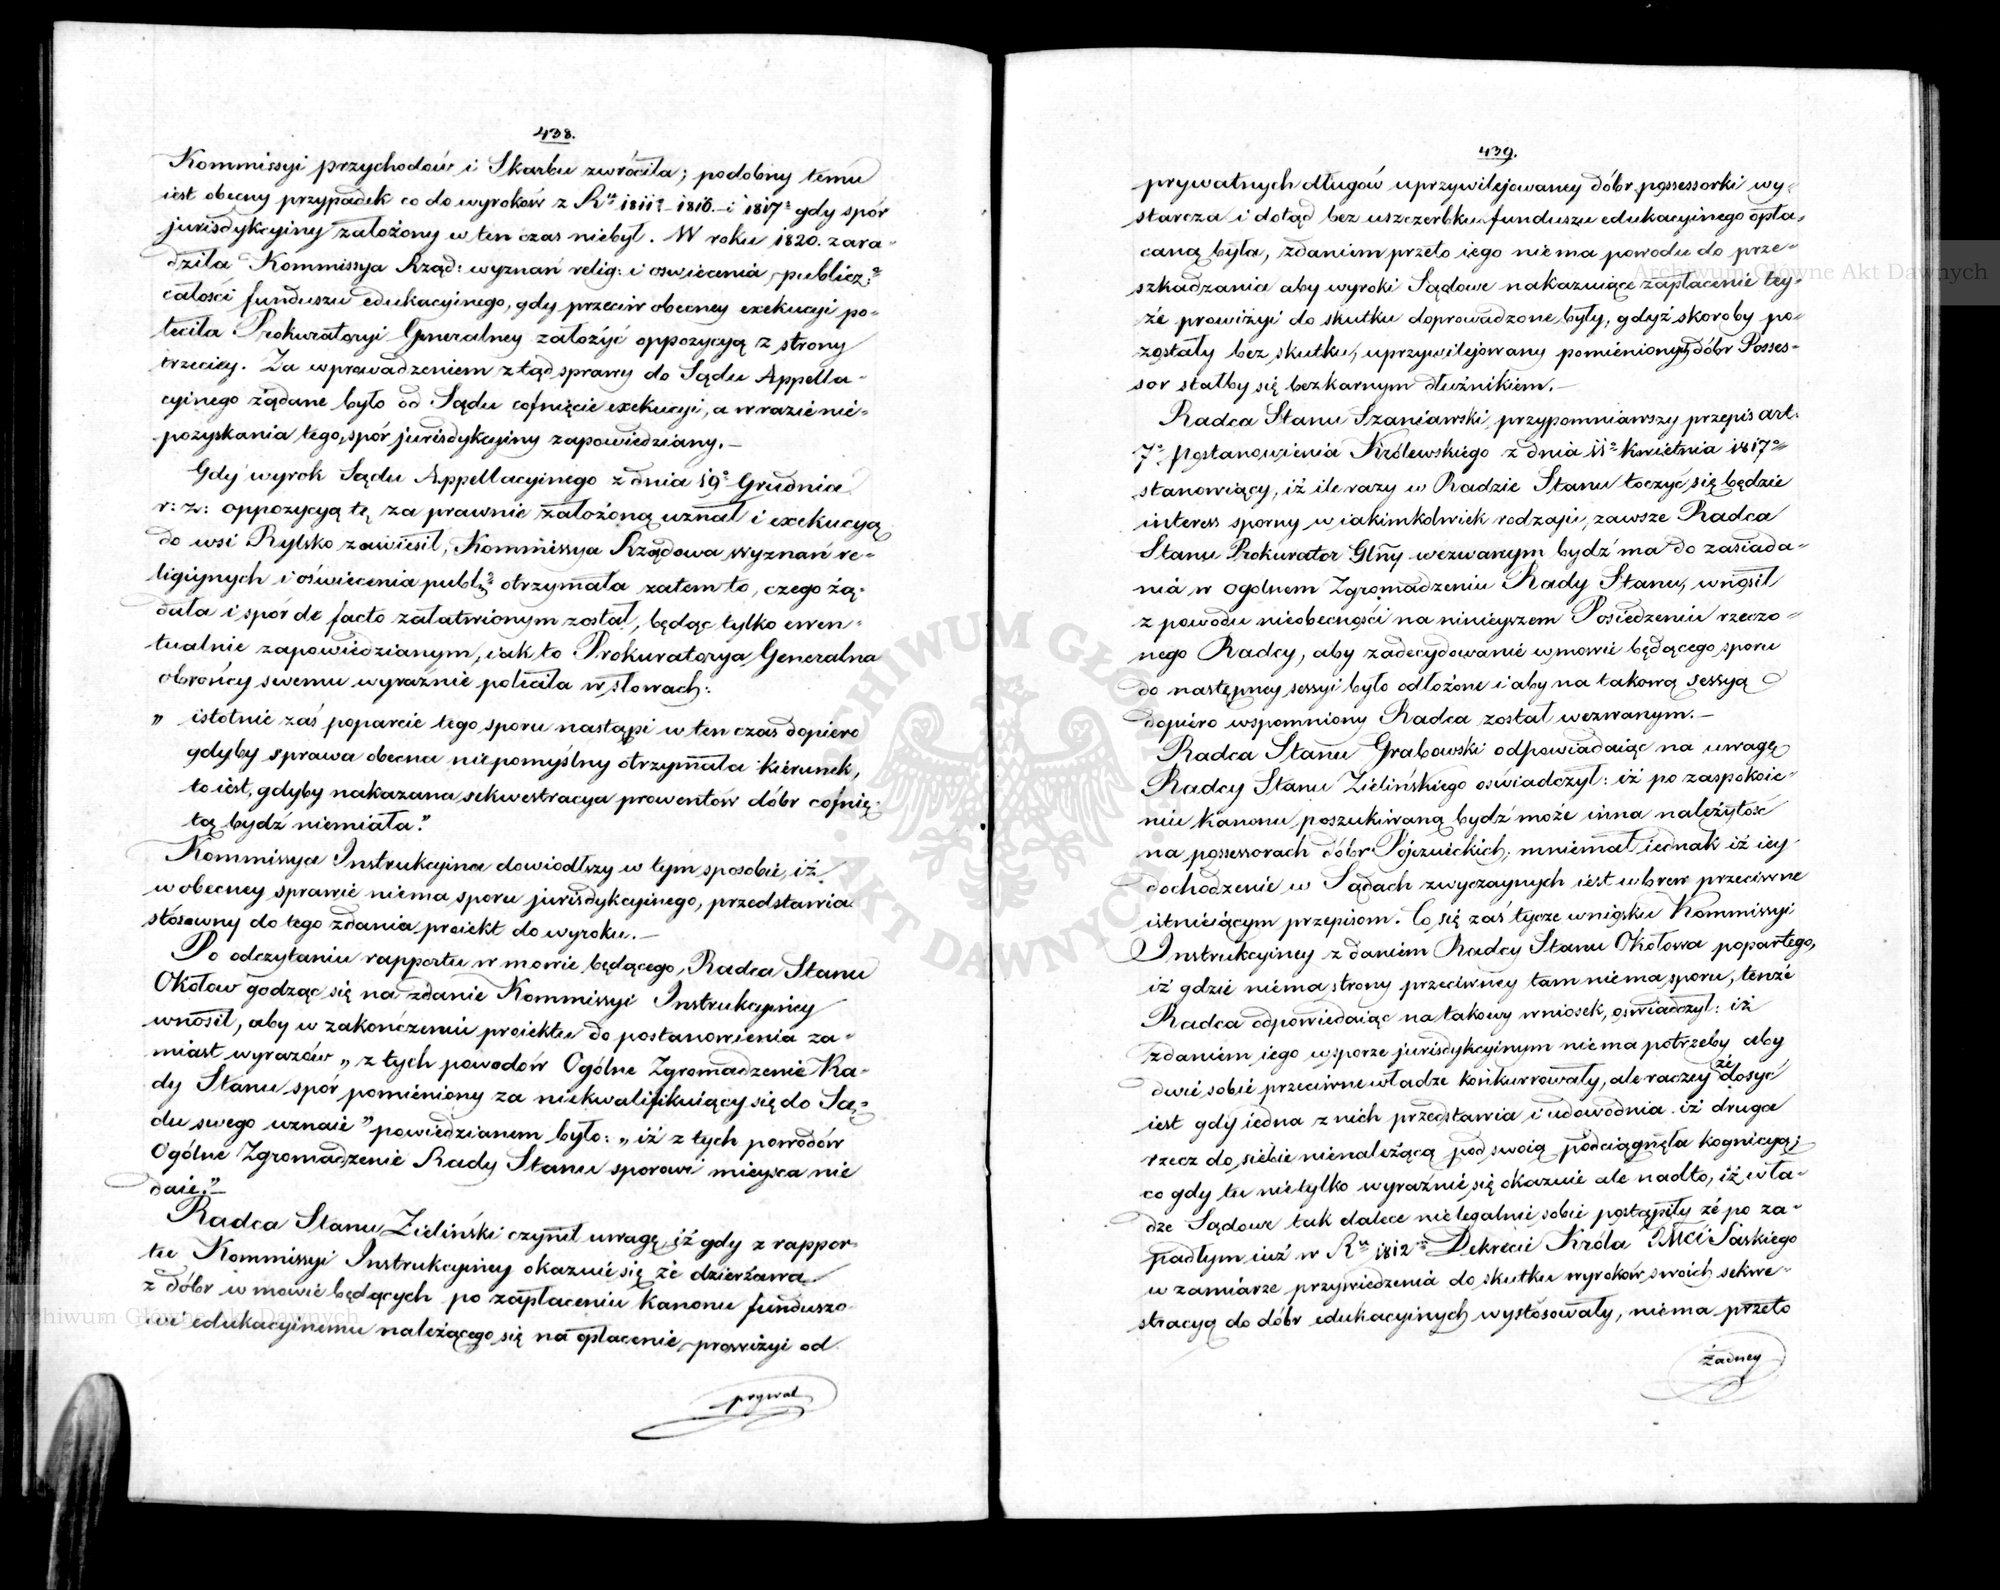 438.
Kommissyi przychodów i Skarbu zwróciła; podobny temu
iest obecny przypadek co do wyroków z Rku 1811go 1816. i 1817o gdy spór
jurisdykcyiny założony w ten czas niebył. W roku 1820. zara-
dziła Kommissya Rząd: wyznań relig: i oswiecenia publicz:o
całosci funduszu edukacyinego, gdy przeciw obecney exekucyi po-
leciła Prokuratoryi Generalney założyć oppozycyą z strony
trzeciey. Za wprowadzeniem ztąd sprawy do Sądu Appella-
cyinego żądane było od Sądu cofnięcie exekucyi, a w razie nie-
pozyskania tego, spór jurisdykcyiny zapowiedziany.—
Gdy wyrok Sądu Appellacyinego z dnia 19o Grudnia
r: z: oppozycyą tę za prawnie założoną uznał i exekucyą
do wsi Rylsko zawiesił, Kommissya Rządowa wyznań re-
ligiynych i oświecenia publ:o otrzymała zatem to, czego żą-
dała i spór de facto załatwionym został, będąc tylko ewen-
tualnie zapowiedzianym, iak to Prokuratorya Generalna
obrońcy swemu wyraznie poleciła w słowach:
„ istotnie zaś poparcie tego sporu nastąpi w ten czas dopiero
gdyby sprawa obecna niepomyślny otrzymała kierunek,
to iest, gdyby nakazana sekwestracya prowentów dóbr cofnię-
tą bydź niemiała.”
Kommissya Instrukcyina dowiodłszy w tym sposobie, iż
w obecney sprawie niema sporu jurisdykcyinego, przedstawia
stósowny do tego zdania proiekt do wyroku.—
Po odczytaniu rapportu w mowie będącego, Radca Stanu
Okołow godząc się na zdanie Kommissyi Instrukcyiney
wnosił, aby w zakończeniu proiektu do postanowienia za-
miast wyrazów „ z tych powodów Ogólne Zgromadzenie Ra-
dy Stanu spór pomieniony za niekwalifikuiący się do Są-
du swego uznaie” powiedzianem było: „ iż z tych powodów
Ogólne Zgromadzenie Rady Stanu sporowi mieysca nie
daie.”—
Radca Stanu Zieliński czynił uwagę, iż gdy z rappor-
tu Kommissyi Instrukcyiney okazuie się że dzierżawa
z dóbr w mowie będących po zapłaceniu kanonu funduszo-
wi edukacyinemu należącego się na opłacenie prowizyi od
prywat
439.
prywatnych długów uprzywilejowaney dóbr possessorki wy-
starcza i dotąd bez uszczerbku funduszu edukacyinego opła-
caną była, zdaniem przeto iego niema powodu do prze-
szkadzania aby wyroki Sądowe nakazuiące zapłacenie tey-
że prowizyi do skutku doprowadzone były, gdyż skoroby po-
zostały bez skutku, uprzywilejowany pomienionych dóbr Posses-
sor stałby się bezkarnym dłużnikiem.—
Radca Stanu Szaniawski, przypomniawszy przepis art:
7o postanowienia Królewskiego z dnia 11o kwietnia 1817o
stanowiący, iż ile razy w Radzie Stanu toczyć się będzie
interess sporny w iakimkolwiek rodzaju, zawsze Radca
Stanu Prokurator Glny wezwanym bydź ma do zasiada-
nia w ogólnem Zgromadzeniu Rady Stanu, wnosił
z powodu nieobecności na ninieyszem Posiedzeniu rzeczo-
nego Radcy, aby zadecydowanie w mowie będącego sporu
do następney sessyi było odłożone i aby na takową sessyą
dopiero wspomniony Radca został wezwanym.—
Radca Stanu Grabowski odpowiadaiąc na uwagę
Radcy Stanu Zielińskiego oświadczył: iż po zaspokoie-
niu kanonu poszukiwaną bydź może inna należytość
na possessorach dóbr Pojezuickich; mniemał iednak iż iey
dochodzenie w Sądach zwyczaynych iest wbrew przeciwne
istnieiącym przepisom. Co się zaś tycze wniosku Kommissyi
Instrukcyiney zdaniem Radcy Stanu Okołowa popartego,
iż gdzie niema strony przeciwney tam niema sporu, tenże
Radca odpowiedaiąc na takowy wniosek, oświadczył: iż
zdaniem iego w sporze jurisdykcyinym nie ma potrzeby aby
dwie sobie przeciwne władze konkurrowały, ale raczey że dosyć
iest gdy iedna z nich przedstawia i udowodnia iż druga
rzecz do siebie nienależącą pod swoią podciągnęła kognicyą;
co gdy tu nietylko wyraźnie się okazuie ale nadto, iż wła-
dze Sądowe tak dalece nielegalnie sobie postąpiły że po za-
padłym iuż w Rku 1812m Dekrecie Króla JMci Saskiego
w zamiarze przywiedzenia do skutku wyroków swoich sekwe-
stracyą do dóbr edukacyinych wystósowały, niema przeto
żadney
ARCHIWUM GŁÓWNE AKT DAWNYCH
Archiwum Główne Akt Dawnych
Archiwum Główne Akt Dawnych